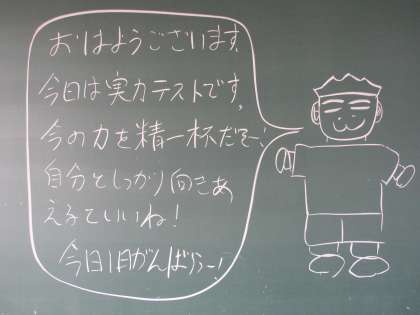 おはようございます。
今日は実力テストです。
今の力を精一杯だそー!
自分としっかり向きあ
えるといいね!
今日1日がんばろー!